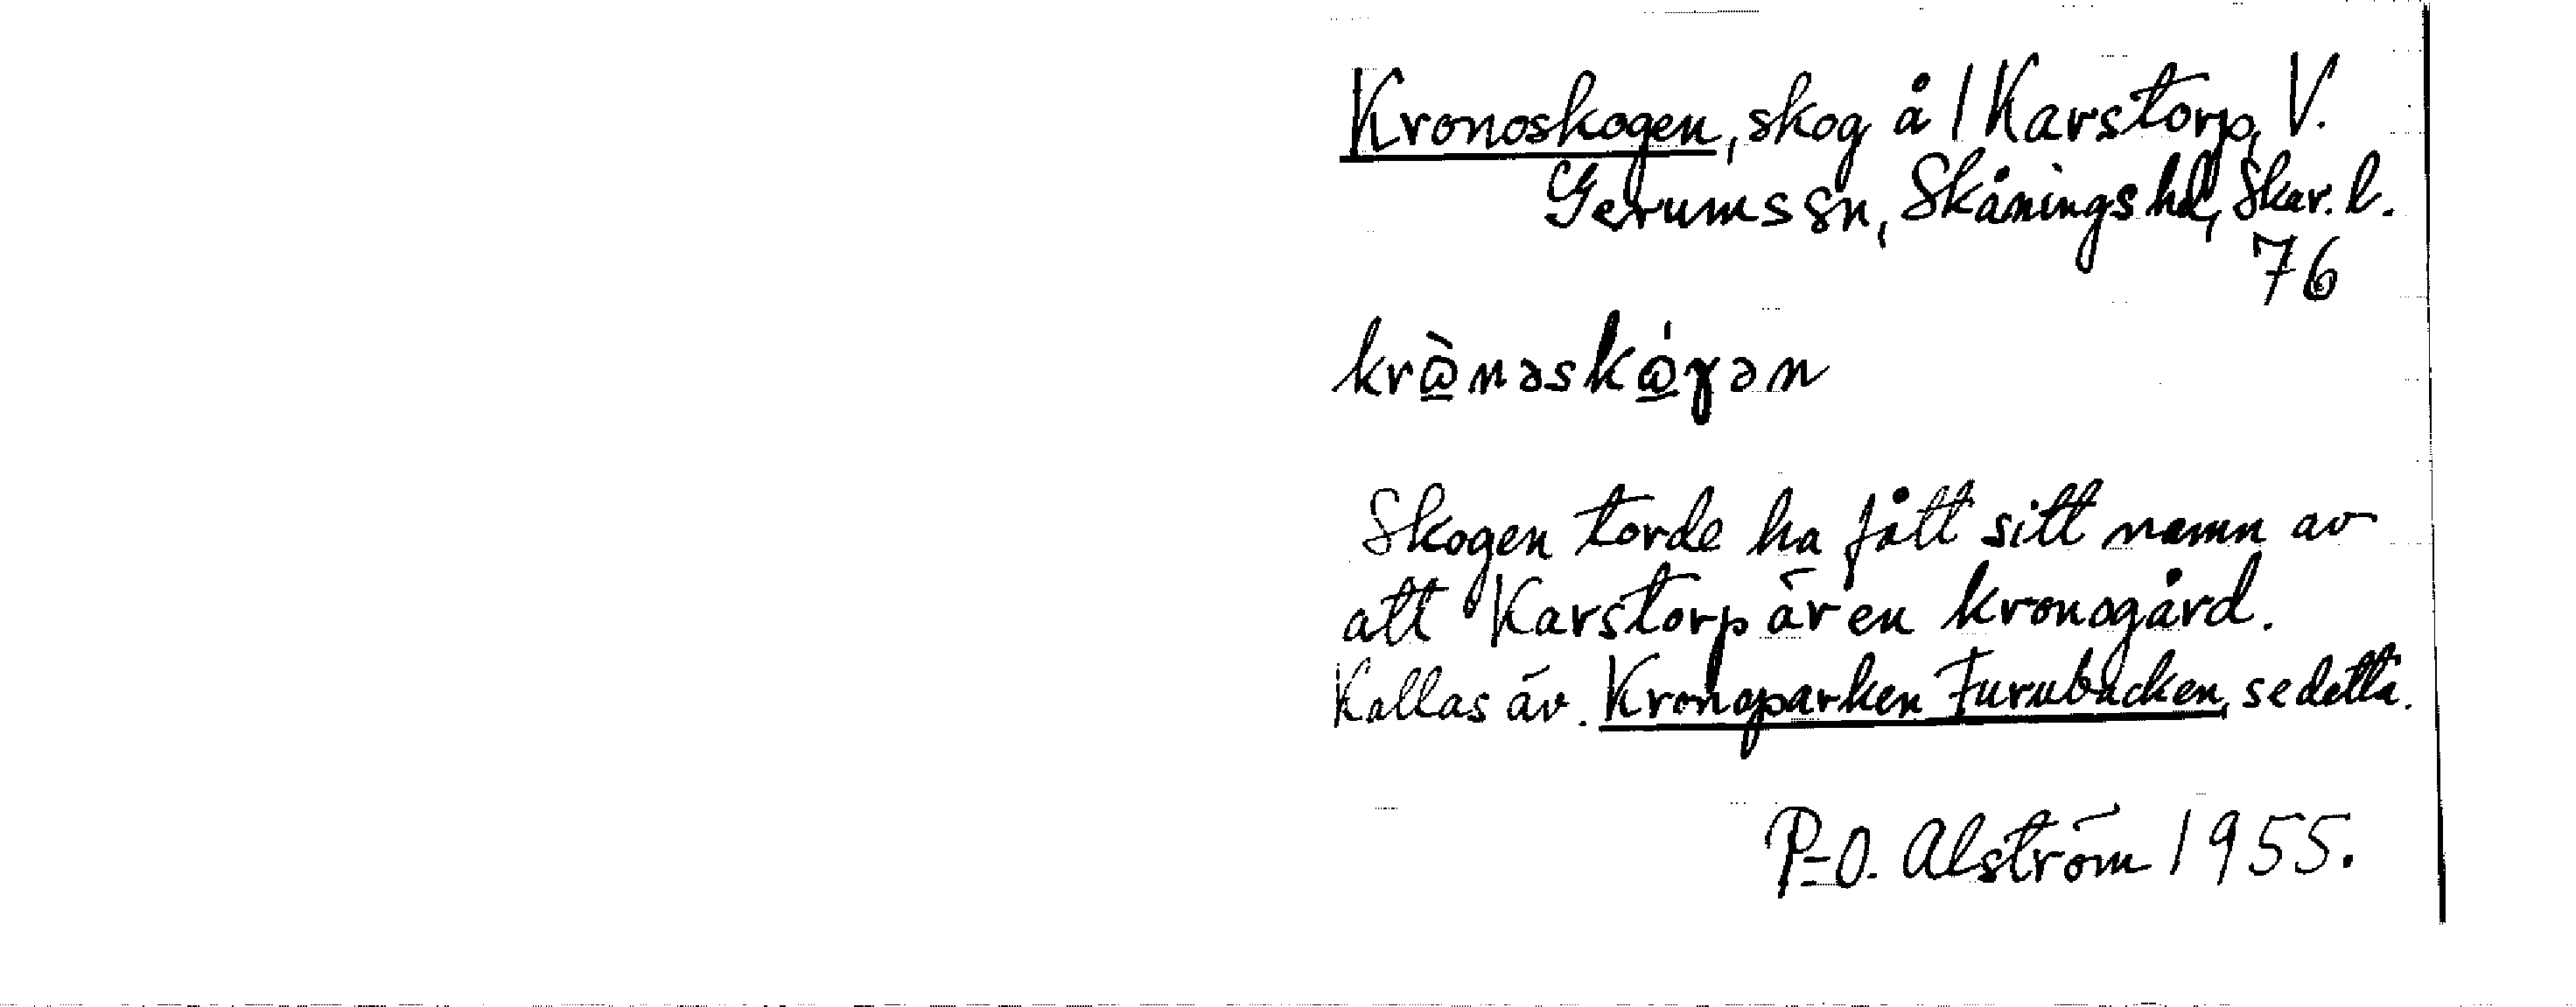 Kronoskogen, skog å 1 Karstorp, V.
Gerums sn, Skånings hd, Skar. l.
76
krὼ̲nəskώ̲γən
Skogen torde ha fått sitt namn av
att Karstorp är en kronogård.
Kallas äv. Kronoparken Furubacken, se detta.
P-O. Alström 1955.